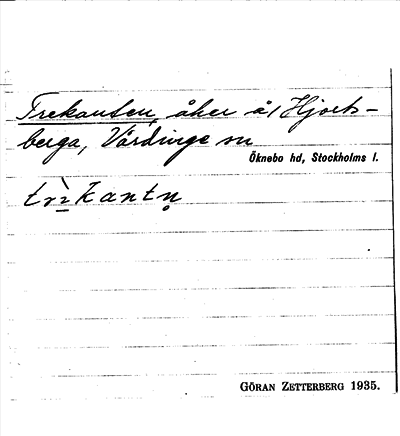 Trekanten, åker å/ Hjorts-
berga, Vårdinge sn
Öknebo hd, Stockholms l.
trìkantn̥
GÖRAN ZETTERBERG 1935.